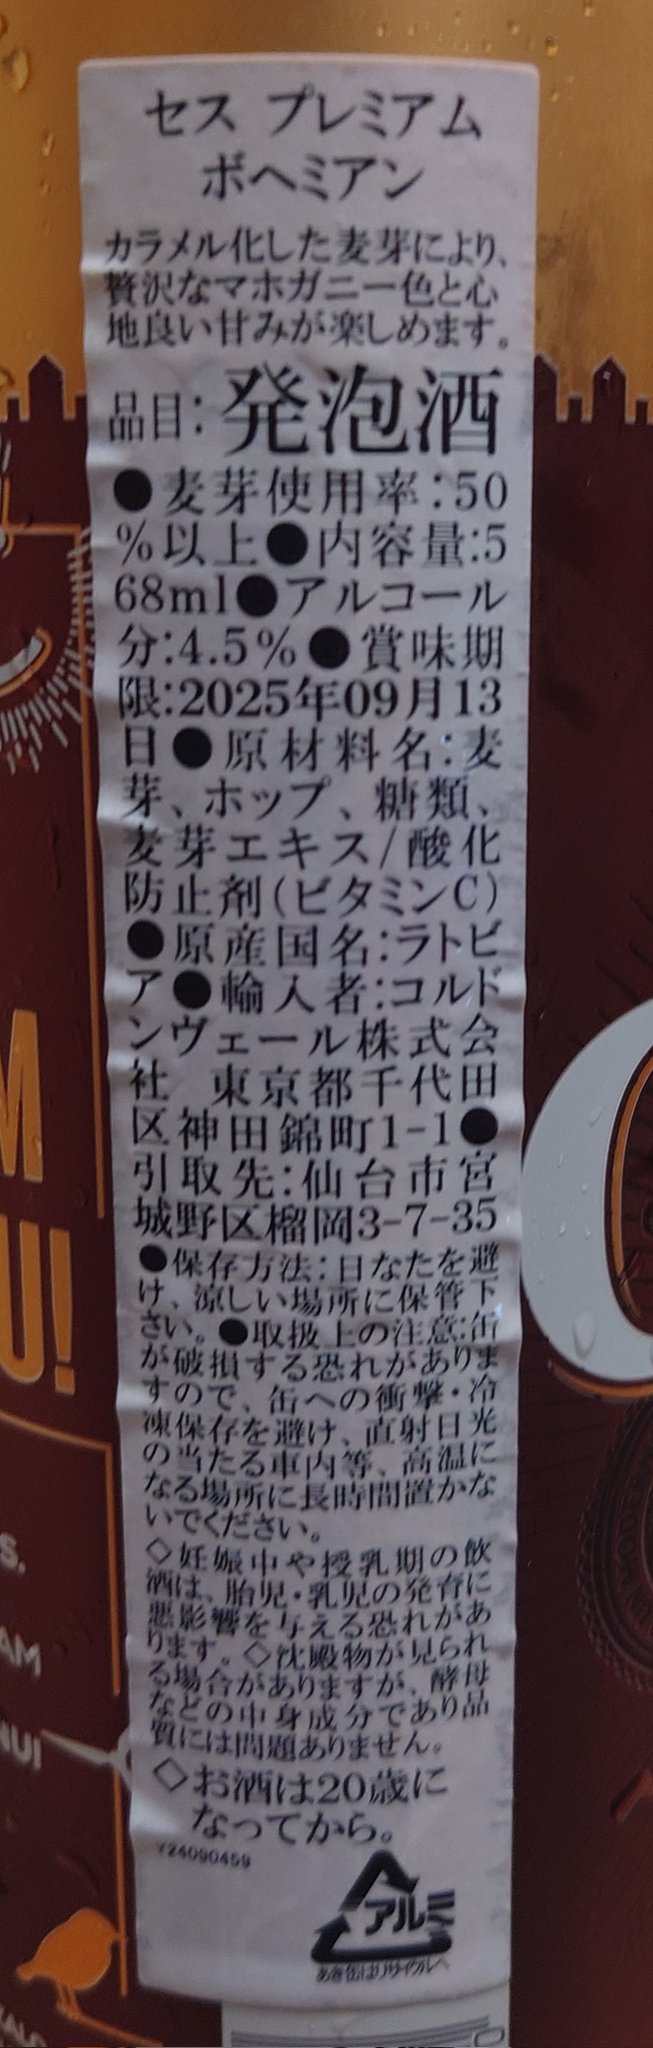 セス プレミアム
ボヘミアン
カラメル化した麦芽により、
贅沢なマホガニー色と心
地良い甘みが楽しめます。
品目:発泡酒
●麦芽使用率:50
%以上●内容量:5
68ml●アルコール
分:4.5%●賞味期
限:2025年09月13
日●原材料名:麦
芽、ホップ、糖類、
麦芽エキス/酸化
防止剤(ビタミンC)
●原産国名:ラトビ
ア●輸入者:コルド
ンヴェール株式会
社 東京都千代田
区神田錦町1-1●
引取先:仙台市宮
城野区榴岡3-7-35
●保存方法:日なたを避
け、涼しい場所に保管下
さい。●取扱上の注意:缶
が破損する恐れがありま
すので、缶への衝撃・冷
凍保存を避け、直射日光
の当たる車内等、高温に
なる場所に長時間置かな
いでください。
◇妊娠中や授乳期の飲
酒は、胎児・乳児の発育に
悪影響を与える恐れがあ
ります。◇沈殿物が見られ
る場合がありますが、酵母
などの中身成分であり品
質には問題ありません。
◇お酒は20歳に
なってから。
Y24090459
アルミ
あき缶はリサイクルへ
M
U!
S.
AM
NU!